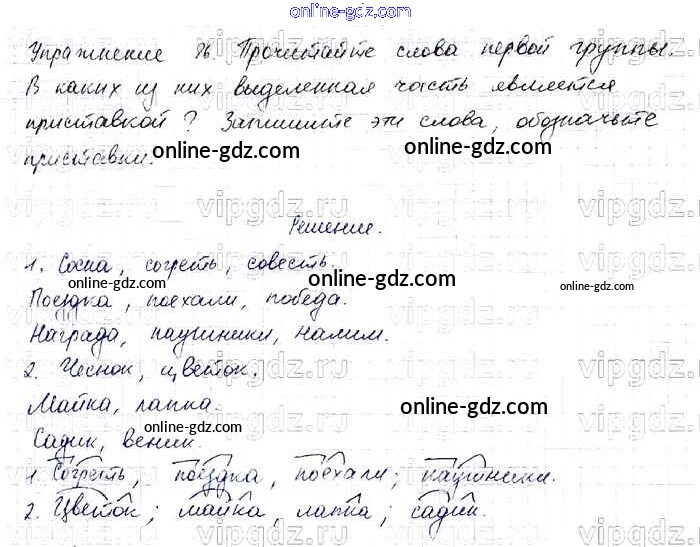 online-gdz.com
Упражнение 86. Прочитайте слова первой группы.
В каких из них выделенная часть является
приставкой? Запишите эти слова, обозначьте
приставки.
online-gdz.com
online-gdz.com
vipgdz.ru
Решение.
1. Сосна, согреть, совесть.
online-gdz.com
online-gdz.com
online-gdz.com
Поездка, поехали, победа.
Награда, наушники, налим.
2. Чеснок, цветок.
Майка, лапка.
online-gdz.com
online-gdz.com
Садик, веник.
1. Согреть, поездка, поехали; наушники.
2. Цветок; майка, лапка; садик.